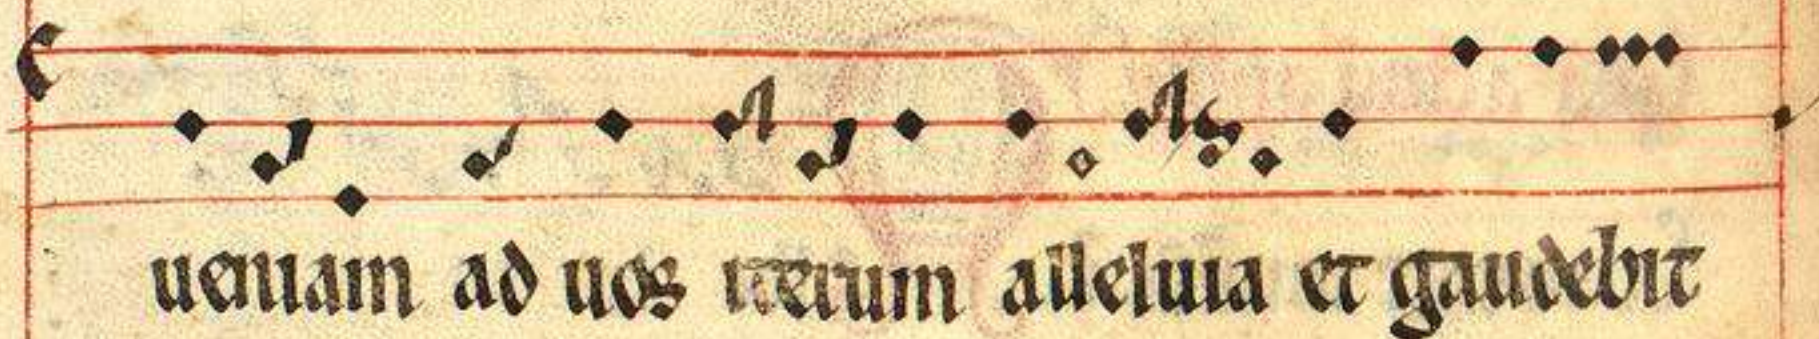 ueniam ad uos iterum alleluia et gaudebit